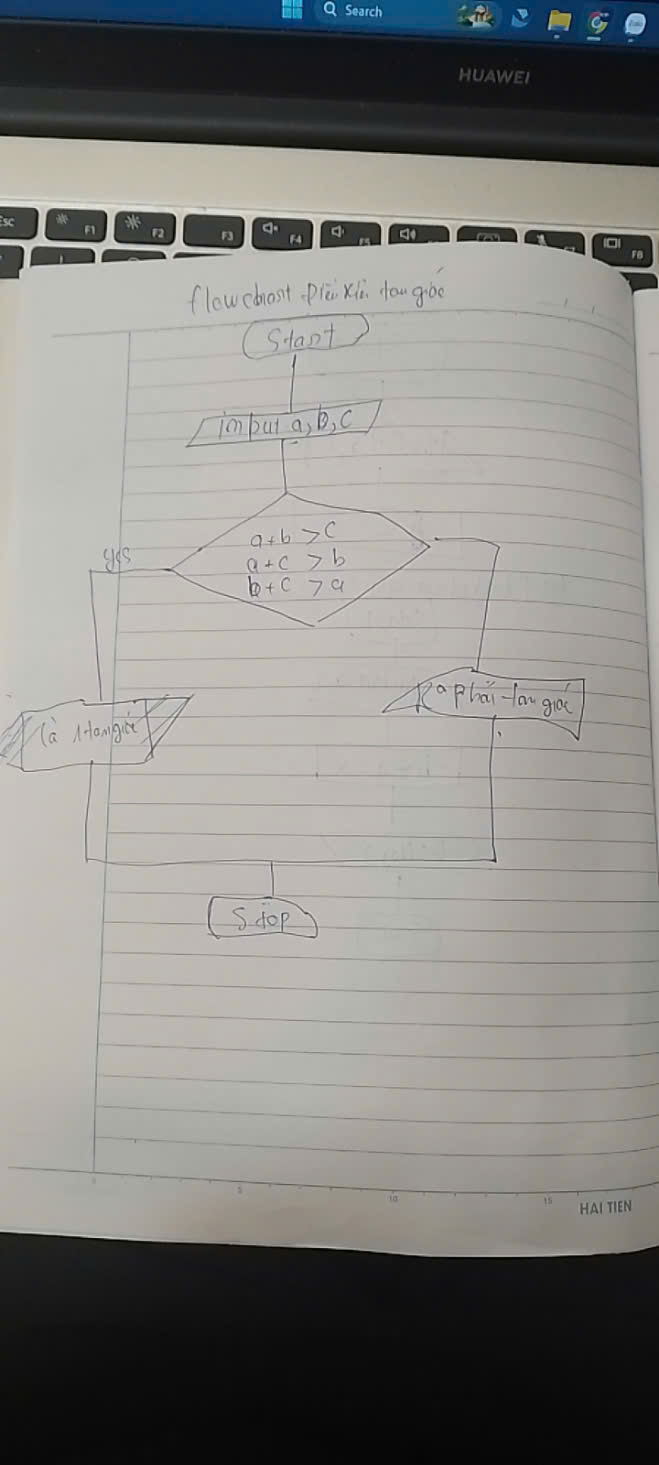 Search
HUAWEI
esc
F1
F2
F3
F4
F5
F7
F8
flowchart Điều kiện tam giác
Start
input a, b, c
a+b > c
a+c > b
b+c > a
yes
là 1 tam giác
K° phải tam giác
Stop
5
10
15
HAI TIEN